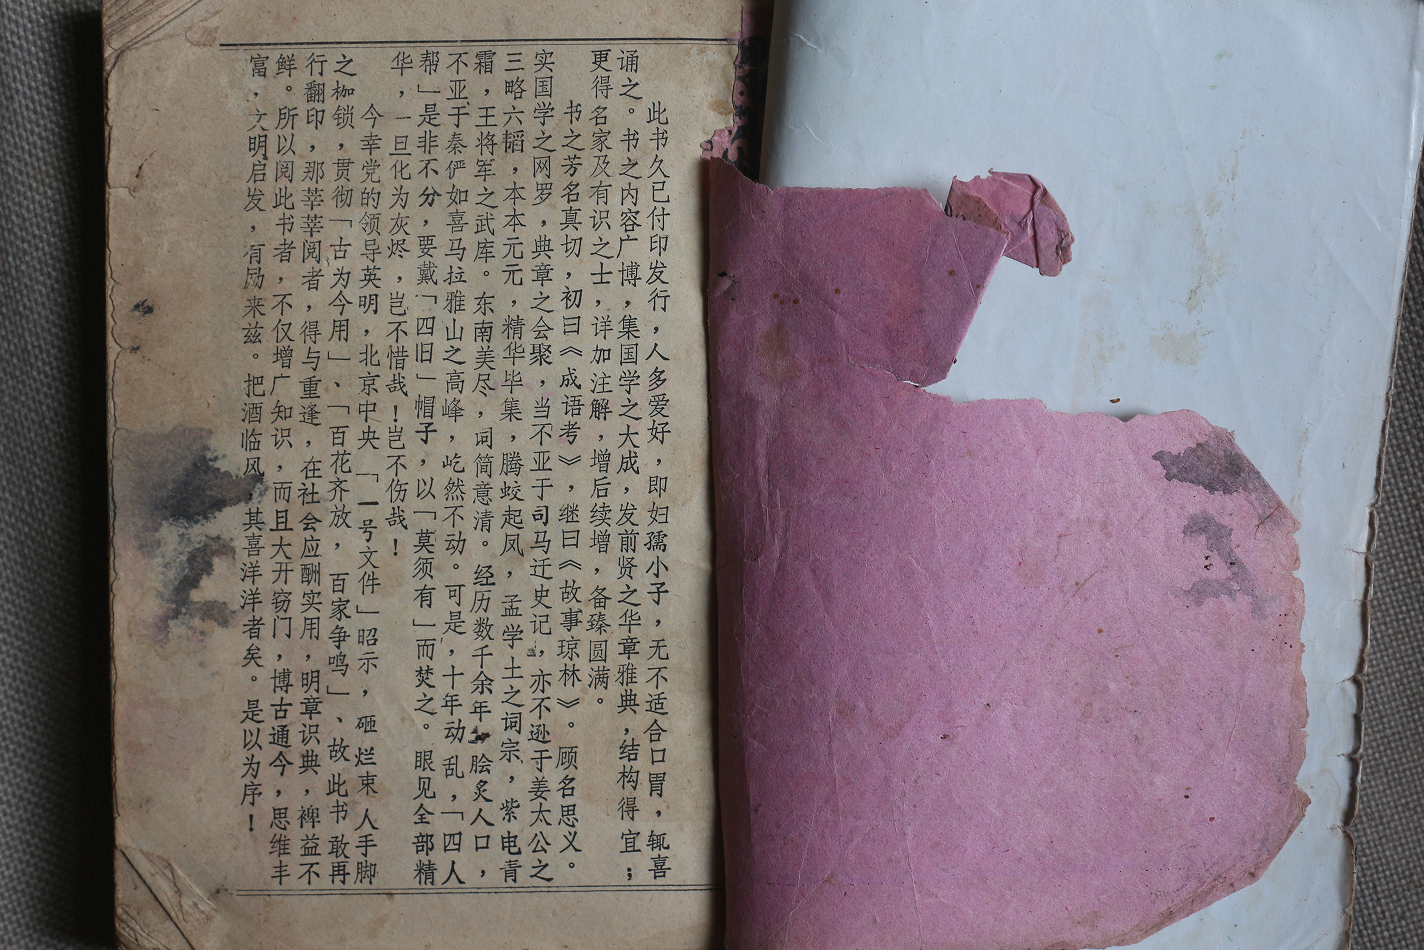 此书久已付印发行，人多爱好，即妇孺小子，无不适合口胃，辄喜
诵之。书之内容广博，集国学之大成，发前贤之华章雅典，结构得宜；
更得名家及有识之士，详加注解，增后续增，备臻圆满。
书之芳名真切，初曰《成语考》，继曰《故事琼林》。顾名思义。
实国学之网罗，典章之会聚，当不亚于司马迁史记，亦不逊于姜太公之
三略六韬，本本元元，精华毕集，腾蛟起凤，孟学土之词宗，紫电青
霜，王将军之武库。东南美尽，词简意清。经历数千余年，脍炙人口，
不亚于秦俨如喜马拉雅山之高峰，屹然不动。可是，十年动乱，「四人
帮」是非不分，要戴「四旧」帽子，以「莫须有」而焚之。眼见全部精
华，一旦化为灰烬，岂不惜哉！岂不伤哉！
今幸党的领导英明，北京中央「一号文件」昭示，砸烂束人手脚
之枷锁，贯彻「古为今用」、「百花齐放，百家争鸣」、故此书敢再
行翻印，那莘莘阅者，得与重逢，在社会应酬实用，明章识典，裨益不
鲜。所以阅此书者，不仅增广知识，而且大开窃门，博古通今，思维丰
富，文明启发，有励来兹。把酒临风，其喜洋洋者矣。是以为序！